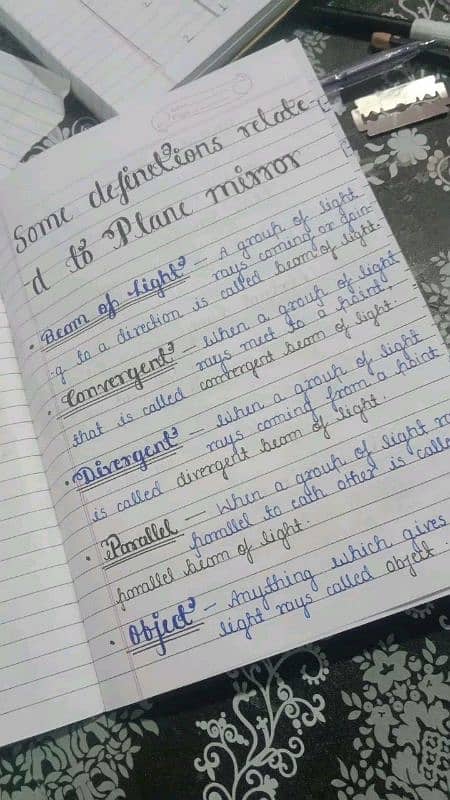 Some definetions relate-
-d to Plane mirror
• Beam of light – A group of light
rays coming or goin-
-g to a direction is called beam of light.
• Convergent – When a group of light
rays meet to a point
that is called convergent beam of light.
• Divergent – When a group of light
rays coming from a point
is called divergent beam of light.
• Parallel – When a group of light ra
parallel to eath other is calle
parallel beam of light.
• Object – Anything which gives
light rays called object.